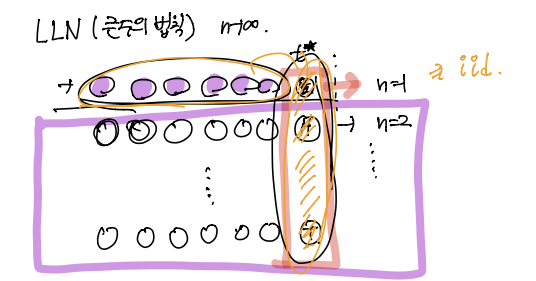 LLN (큰수의 법칙) n→∞.
t*
n=1
iid.
n=2